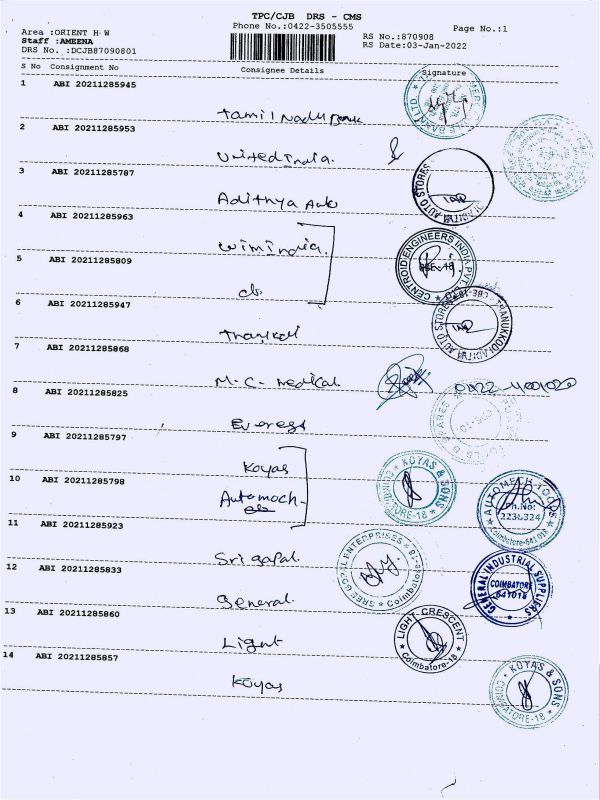 TPC/CJB DRS - CMS
Phone No.:0422-3505555
Page No.:1
Area :ORIENT H W
RS No.:870908
Staff :AMEENA
RS Date:03-Jan-2022
DRS No. :DCJB87090801
S No Consignment No Consignee Details Signature
1 ABI 20211285945
Tamil Nadu
2 ABI 20211285953
United India.
3 ABI 20211285787
Adithya Auto
ADITHYA AUTO STORES
4 ABI 20211285963
Wim India.
CENTROID ENGINEERS INDIA PVT.
5 ABI 20211285809
6 ABI 20211285947
AUTO STORES
7 ABI 20211285868
M.C. Medical
8 ABI 20211285825
Everest
9 ABI 20211285797
Koyas
KOYAS & SONS
10 ABI 20211285798
Automech
AUTOMECH
Ph.No:
2236324
Coimbatore-641 018
11 ABI 20211285923
Sri gopal.
ENTERPRISES
Coimbatore-18
12 ABI 20211285833
General.
GENERAL INDUSTRIAL SUPPLIERS
COIMBATORE
641018
13 ABI 20211285860
Light
LIGHT CRESCENT
Coimbatore-18
14 ABI 20211285857
Koyas
KOYAS & SONS